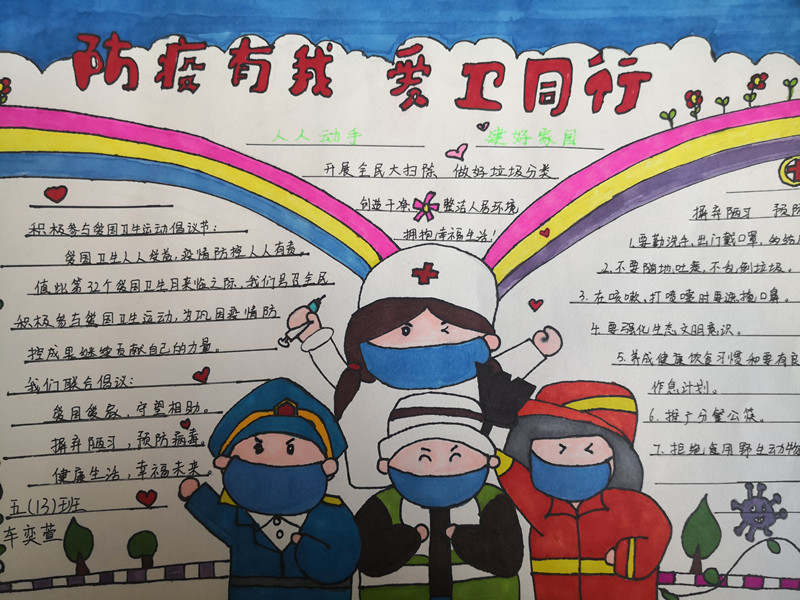 防疫有我 爱卫同行
人人动手 建好家园
开展全民大扫除 做好垃圾分类
创造干净 整洁人居环境
拥抱幸福生活!
积极参与爱国卫生运动倡议书:
爱国卫生人人受益,疫情防控人人有责
值此第32个爱国卫生月来临之际,我们号召全民
积极参与爱国卫生运动,为巩固疫情防
控成果继续贡献自己的力量。
我们联合倡议:
爱国爱家,守望相助。
摒弃陋习,预防病毒。
健康生活,幸福未来。
五(13)班
车奕萱
摒弃陋习 预防
1.要勤洗手,出门戴口罩,
2.不要随地吐痰,不乱倒垃圾。
3.在咳嗽、打喷嚏时要遮掩口鼻。
4.要强化生态文明意识。
5.养成健康饮食习惯和要有良
作息计划。
6.推广分餐公筷。
7.拒绝食用野生动物